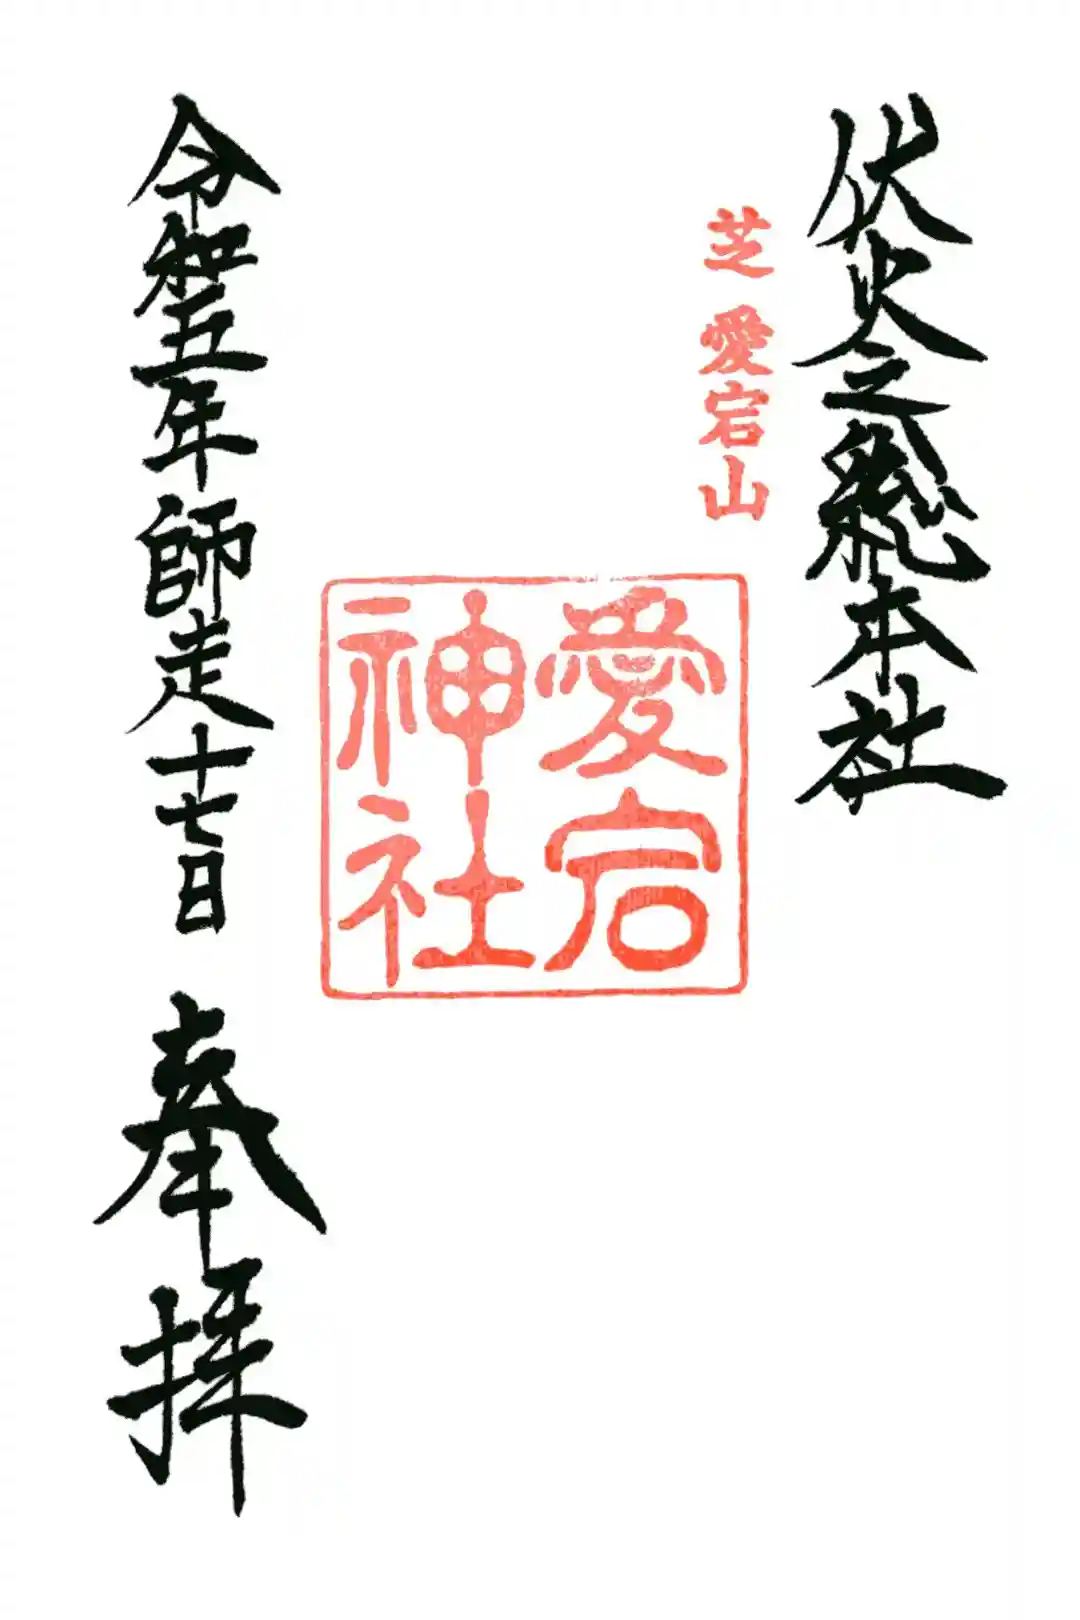 伏火之總本社
芝 愛宕山
愛宕
神社
令和五年師走十七日 奉拝